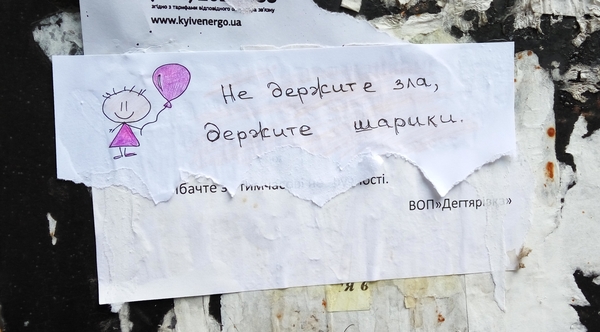 згідно з тарифами відповідного оператора зв'язку
www.kyivenergo.ua
Не держите зла,
держите шарики.
бачте
ВОП»Дегтярівка»
Я 6